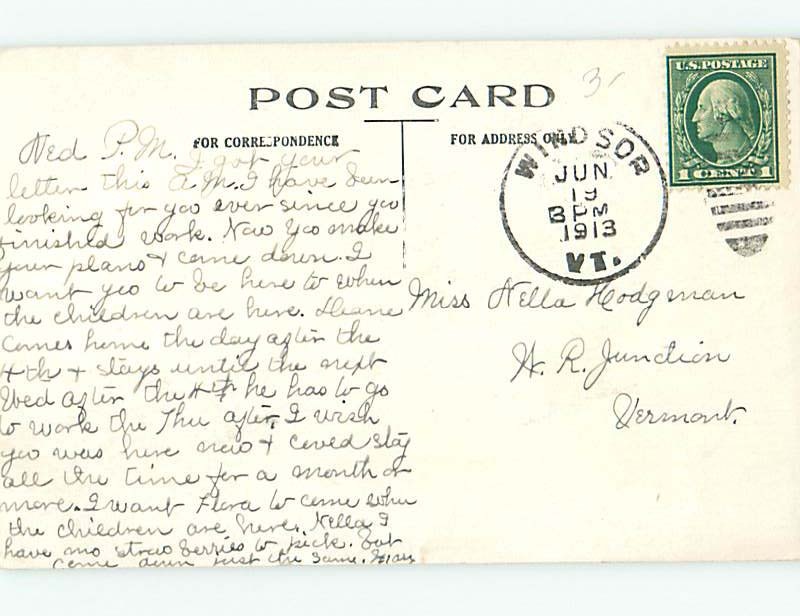 POST CARD
FOR CORRESPONDENCE
FOR ADDRESS ONLY
3
U.S. POSTAGE
1 CENT 1
WINDSOR
JUN
19
3 PM
1913
VT.
Wed P.M. I got your
letter this A.M. I have been
looking for you ever since you
finished work. Now you make
your plans & come down. I
want you to be here to when
the children are here. Deane
comes home the day after the
4th & stays until the next
Wed after the 4th he has to go
to work the Thu after. I wish
you was here now & coved stay
all the time for a month or
more. I want Flora to come when
the children are here. Nella I
have no straw berries to pick. but
come down just the same.
Miss Nella Hodgman
W. R. Junction
Vermont.